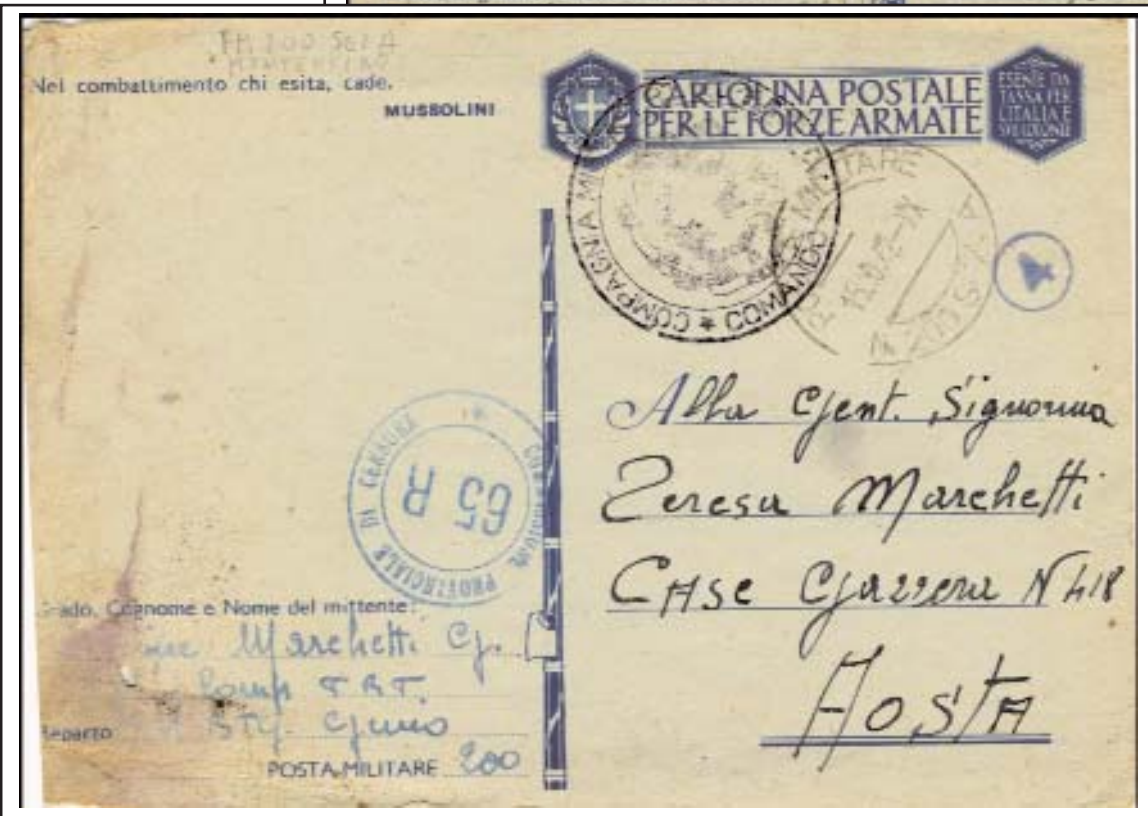 Nel combattimento chi esita, cade.
MUSSOLINI
CARTOLINA POSTALE
PER LE FORZE ARMATE
ESENTE DA
TASSA PER
L'ITALIA E
COMPAGNIA * COMANDO
MILITARE
PROVINCIALE DI CENSURA
65 R
Alla Gent. Signorina
Teresa Marchetti
CASE Gazzera N 418
AOSTA
Grado, Cognome e Nome del mittente
Marchetti G.
Comp T.R.T.
Reparto BTG. Genio
POSTA MILITARE 200